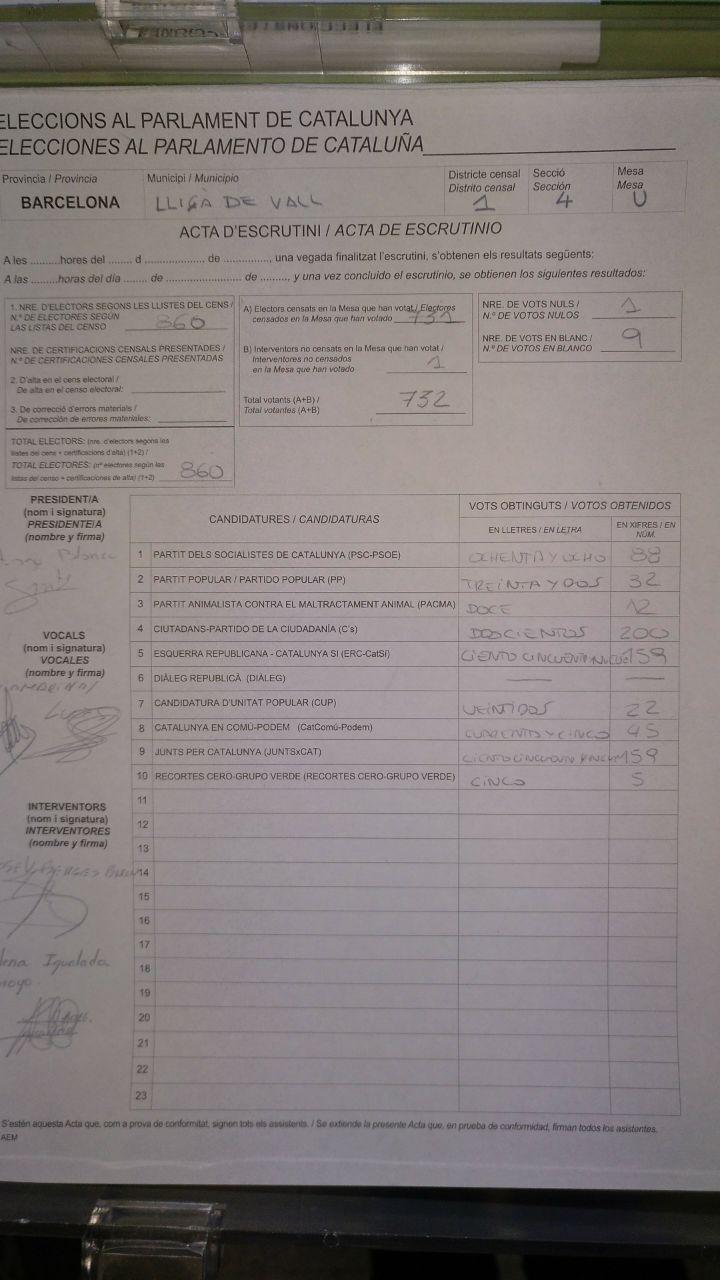 ELECCIONS AL PARLAMENT DE CATALUNYA
ELECCIONES AL PARLAMENTO DE CATALUÑA
Provincia / Provincia
BARCELONA
Municipi / Municipio
LLIÇÀ DE VALL
Districte censal
Distrito censal
1
Secció
Sección
4
Mesa
Mesa
U
ACTA D'ESCRUTINI / ACTA DE ESCRUTINIO
A les .........hores del ........ d .................... de ..............., una vegada finalitzat l'escrutini, s'obtenen els resultats següents:
A las .........horas del día ........ de ......................... de ........., y una vez concluido el escrutinio, se obtienen los siguientes resultados:
1. NRE. D'ELECTORS SEGONS LES LLISTES DEL CENS /
N.º DE ELECTORES SEGÚN
LAS LISTAS DEL CENSO 860
NRE. DE CERTIFICACIONS CENSALS PRESENTADES /
N.º DE CERTIFICACIONES CENSALES PRESENTADAS
2. D'alta en el cens electoral /
De alta en el censo electoral:
3. De correcció d'errors materials /
De corrección de errores materiales:
TOTAL ELECTORS: (nre. d'electors segons les
llistes del cens + certificacions d'alta) (1+2) /
TOTAL ELECTORES: (nº electores según las
listas del censo + certificaciones de alta) (1+2) 860
A) Electors censats en la Mesa que han votat / Electores
censados en la Mesa que han votado 731
B) Interventors no censats en la Mesa que han votat /
Interventores no censados
en la Mesa que han votado 1
Total votants (A+B) /
Total votantes (A+B) 732
NRE. DE VOTS NULS /
N.º DE VOTOS NULOS 1
NRE. DE VOTS EN BLANC /
N.º DE VOTOS EN BLANCO 9
PRESIDENT/A
(nom i signatura)
PRESIDENTE/A
(nombre y firma)
VOCALS
(nom i signatura)
VOCALES
(nombre y firma)
INTERVENTORS
(nom i signatura)
INTERVENTORES
(nombre y firma)
Igualada
CANDIDATURES / CANDIDATURAS
VOTS OBTINGUTS / VOTOS OBTENIDOS
EN LLETRES / EN LETRA
EN XIFRES / EN NÚM.
1 PARTIT DELS SOCIALISTES DE CATALUNYA (PSC-PSOE) OCHENTA Y OCHO 88
2 PARTIT POPULAR / PARTIDO POPULAR (PP) TREINTA Y DOS 32
3 PARTIT ANIMALISTA CONTRA EL MALTRACTAMENT ANIMAL (PACMA) DOCE 12
4 CIUTADANS-PARTIDO DE LA CIUDADANÍA (C's) DOSCIENTOS 200
5 ESQUERRA REPUBLICANA - CATALUNYA SI (ERC-CatSí) CIENTO CINCUENTA NUEVE 159
6 DIÀLEG REPUBLICÀ (DIÀLEG) — —
7 CANDIDATURA D'UNITAT POPULAR (CUP) VEINTIDOS 22
8 CATALUNYA EN COMÚ-PODEM (CatComú-Podem) CUARENTA Y CINCO 45
9 JUNTS PER CATALUNYA (JUNTSxCAT) 159
10 RECORTES CERO-GRUPO VERDE (RECORTES CERO-GRUPO VERDE) CINCO 5
11
12
13
14
15
16
17
18
19
20
21
22
23
S'estén aquesta Acta que, com a prova de conformitat, signen tots els assistents. / Se extiende la presente Acta que, en prueba de conformidad, firman todos los asistentes.
AEM